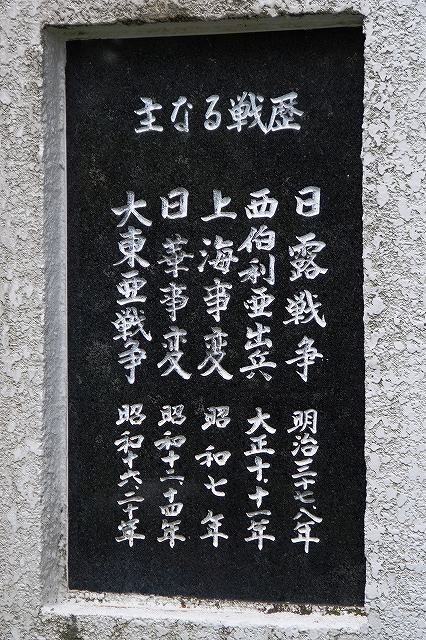 主なる戦歴
日露戦争 明治三十七、八年
西伯利亜出兵 大正十、十一年
上海事変 昭和七年
日華事変 昭和十二ー十四年
大東亜戦争 昭和十六、二十年